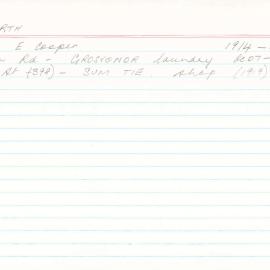 RTH
E Cooper 1914 -
Rd - GROSVENOR laundry
St (379) - SUM TIE shop (1919)